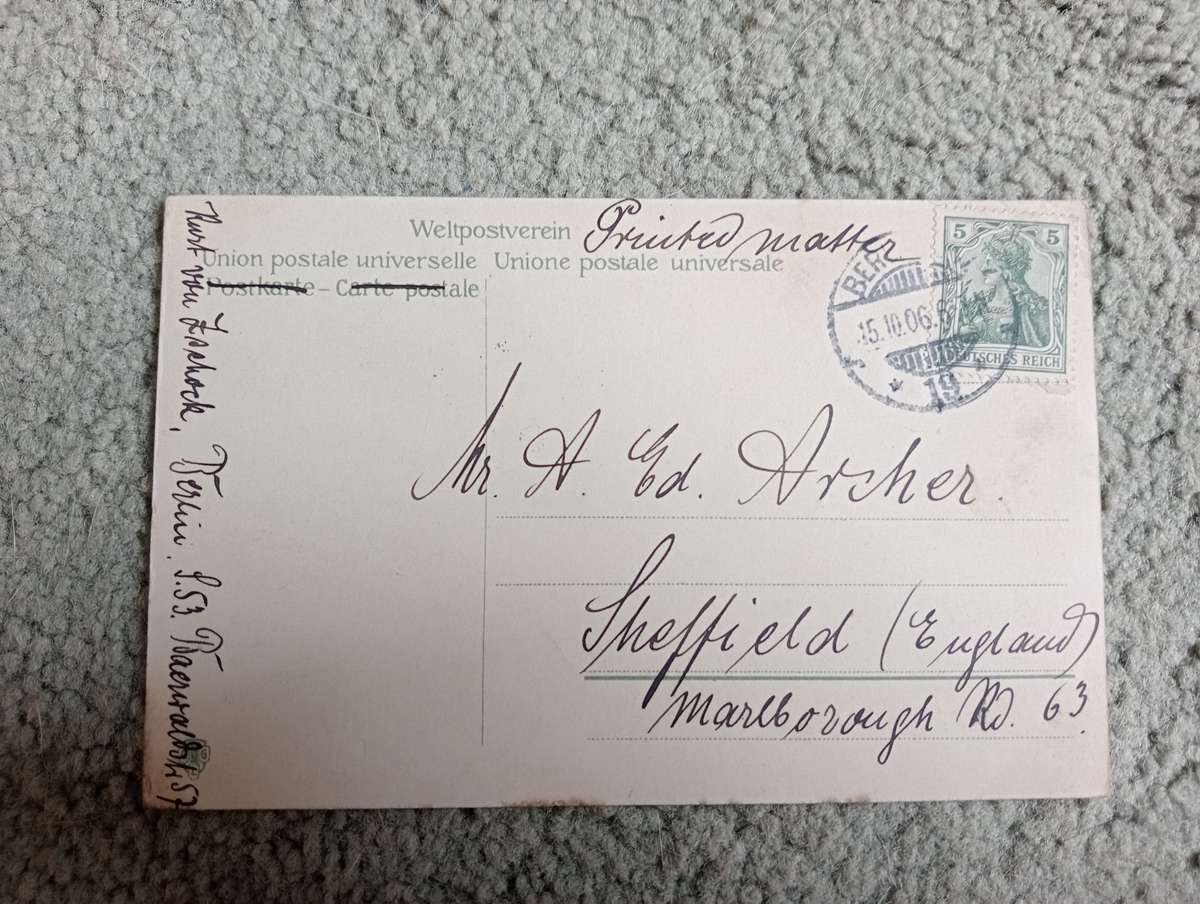 Weltpostverein Printed matter
Union postale universelle Unione postale universale
Postkarte – Carte postale
5 5
DEUTSCHES REICH
15.10.06.
19
Mr. A. Ed. Archer.
Sheffield (England)
Marlborough Rd. 63
Kurt von Zschock, Berlin, S.53. Baerwaldstr 57